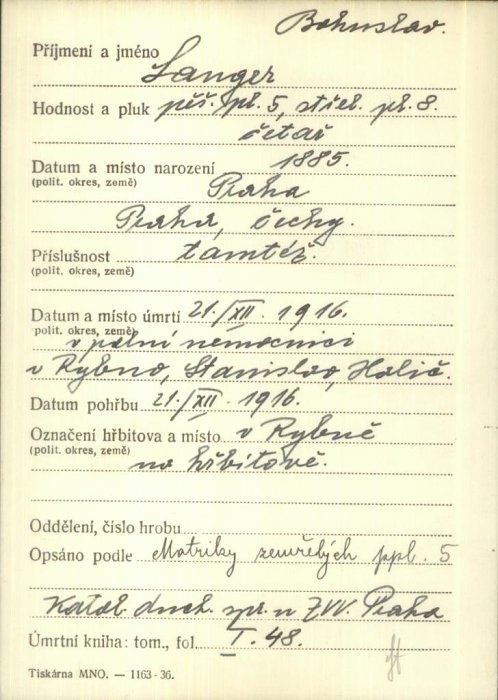 Bohuslav.
Příjmení a jméno
Langer
Hodnost a pluk pěš. pl. 5, střel. pl. 8.
četař
Datum a místo narození 1885.
(polit. okres, země)
Praha
Praha, Čechy.
Příslušnost tamtéž.
(polit. okres, země)
Datum a místo úmrtí 21./XII. 1916.
polit. okres, země)
v polní nemocnici
v Rybno, Stanislav, Halič.
Datum pohřbu 21./XII. 1916.
Označení hřbitova a místo v Rybně
(polit. okres, země)
na hřbitově.
Oddělení, číslo hrobu
Opsáno podle Matriky zemřelých ppl. 5
Katol. duch. spr. u ZVV. Praha
Úmrtní kniha: tom., fol. I. 48.
Tiskárna MNO. — 1163-36.